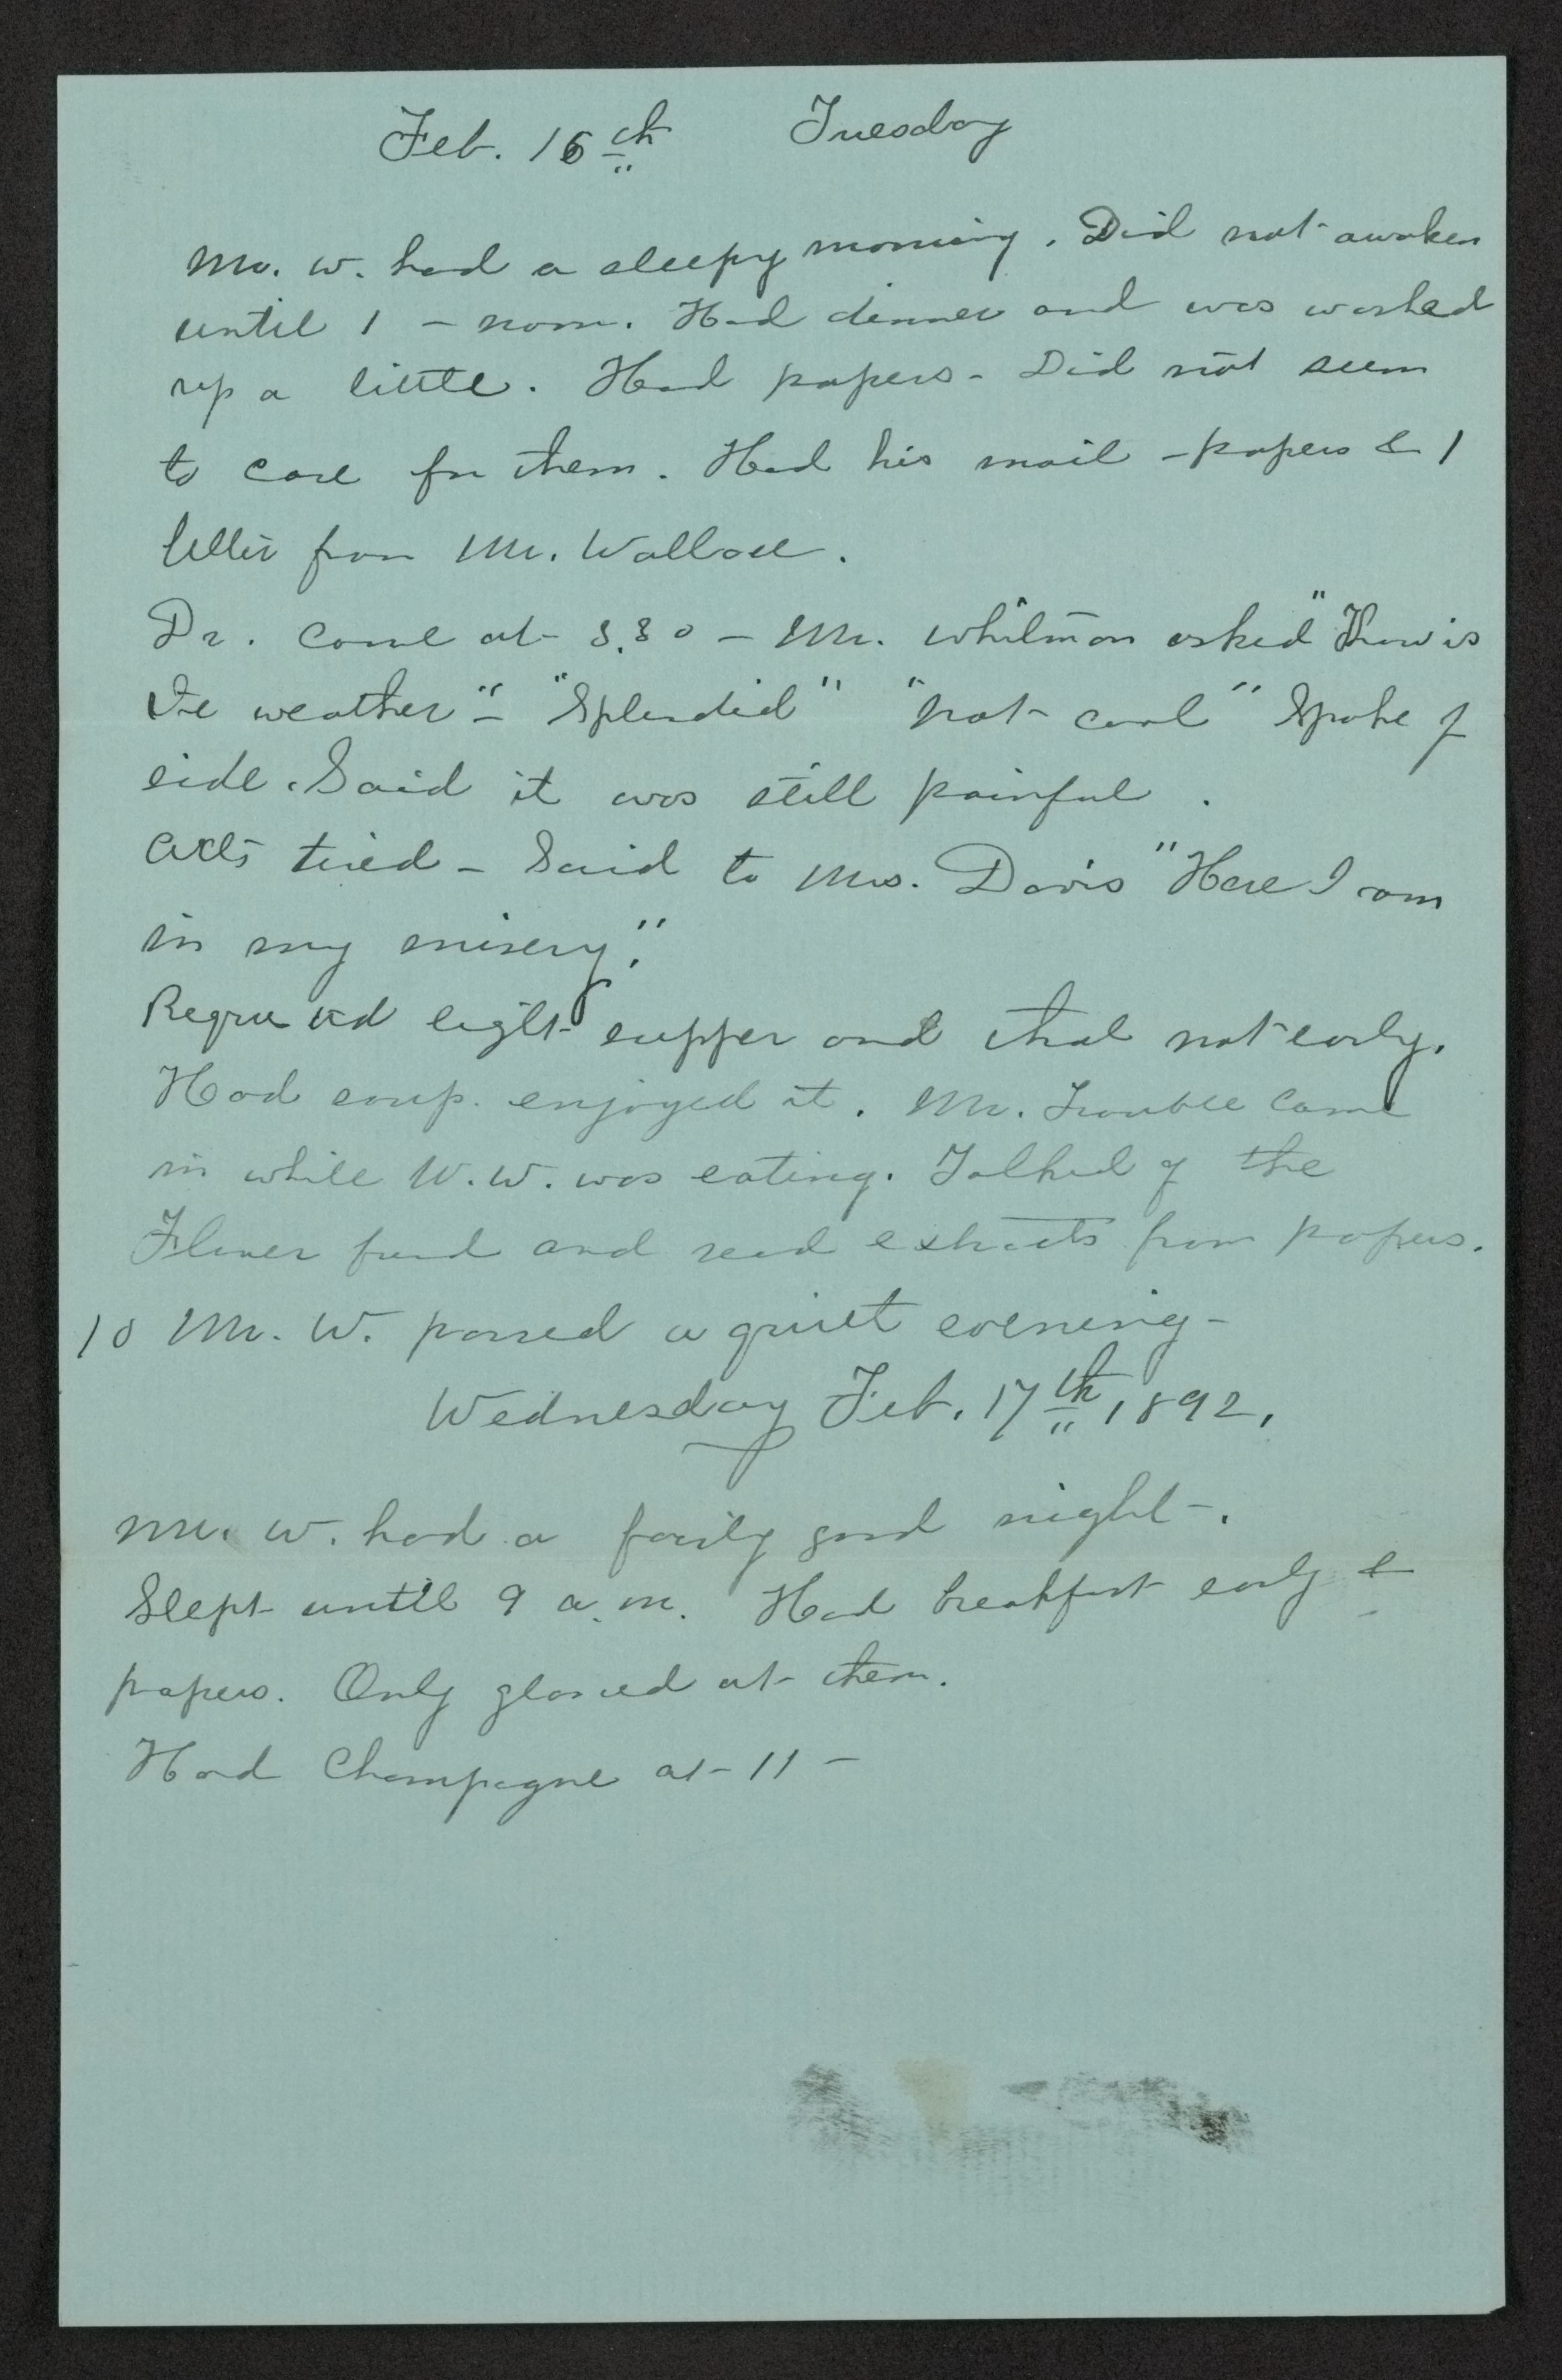 Feb. 16th Tuesday
Mr. W. had a sleepy morning. Did not awaken
until 1 - noon. Had dinner and was washed
up a little. Had papers - Did not seem
to care for them. Had his mail - papers & 1
letter from Mr. Wallace.
Dr. came at 3.30 - Mr. Whitman asked "How is
the weather" - "Splendid" "Not cool" Spoke of
side. Said it was still painful.
Acts tired - Said to Mrs. Davis "Here I am
in my misery."
Requested light supper and that not early.
Had soup. enjoyed it. Mr. Trouble came
in while W. W. was eating. Talked of the
Flower fund and read extracts from papers.
10 Mr. W. passed a quiet evening -
Wednesday Feb. 17th, 1892.
Mr. W. had a fairly good night -.
Slept until 9 a.m. Had breakfast early &
papers. Only glanced at them.
Had Champagne at - 11 -